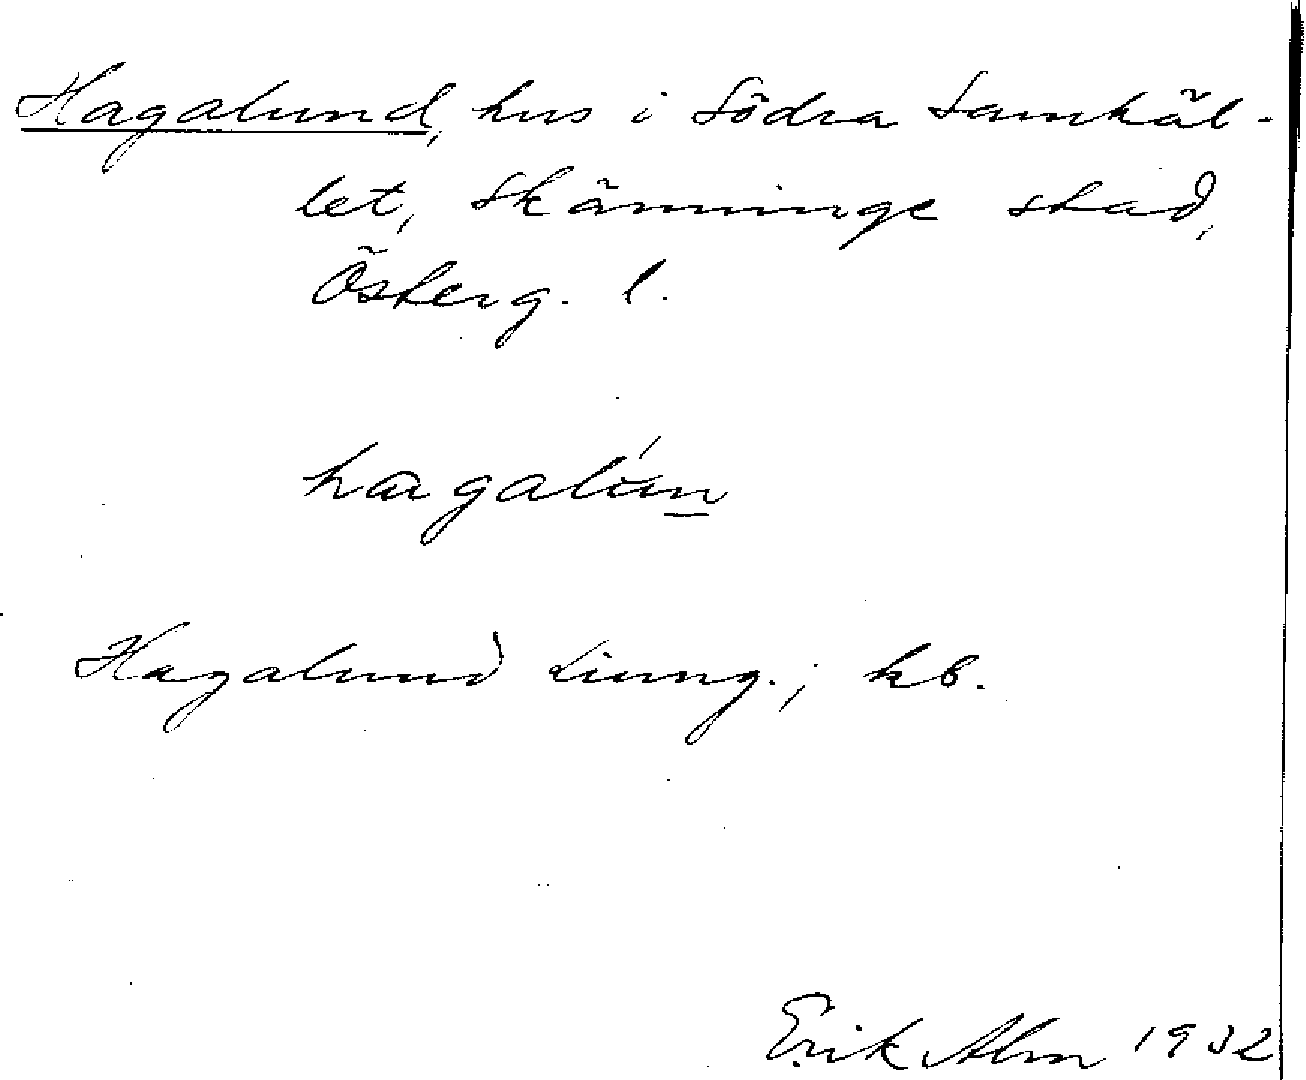 Hagalund, hus i Södra Samhäl-
let, Skänninge stad,
Österg. l.
hagalun
Hagalund Ljung.; kb.
Erik Alm 1932